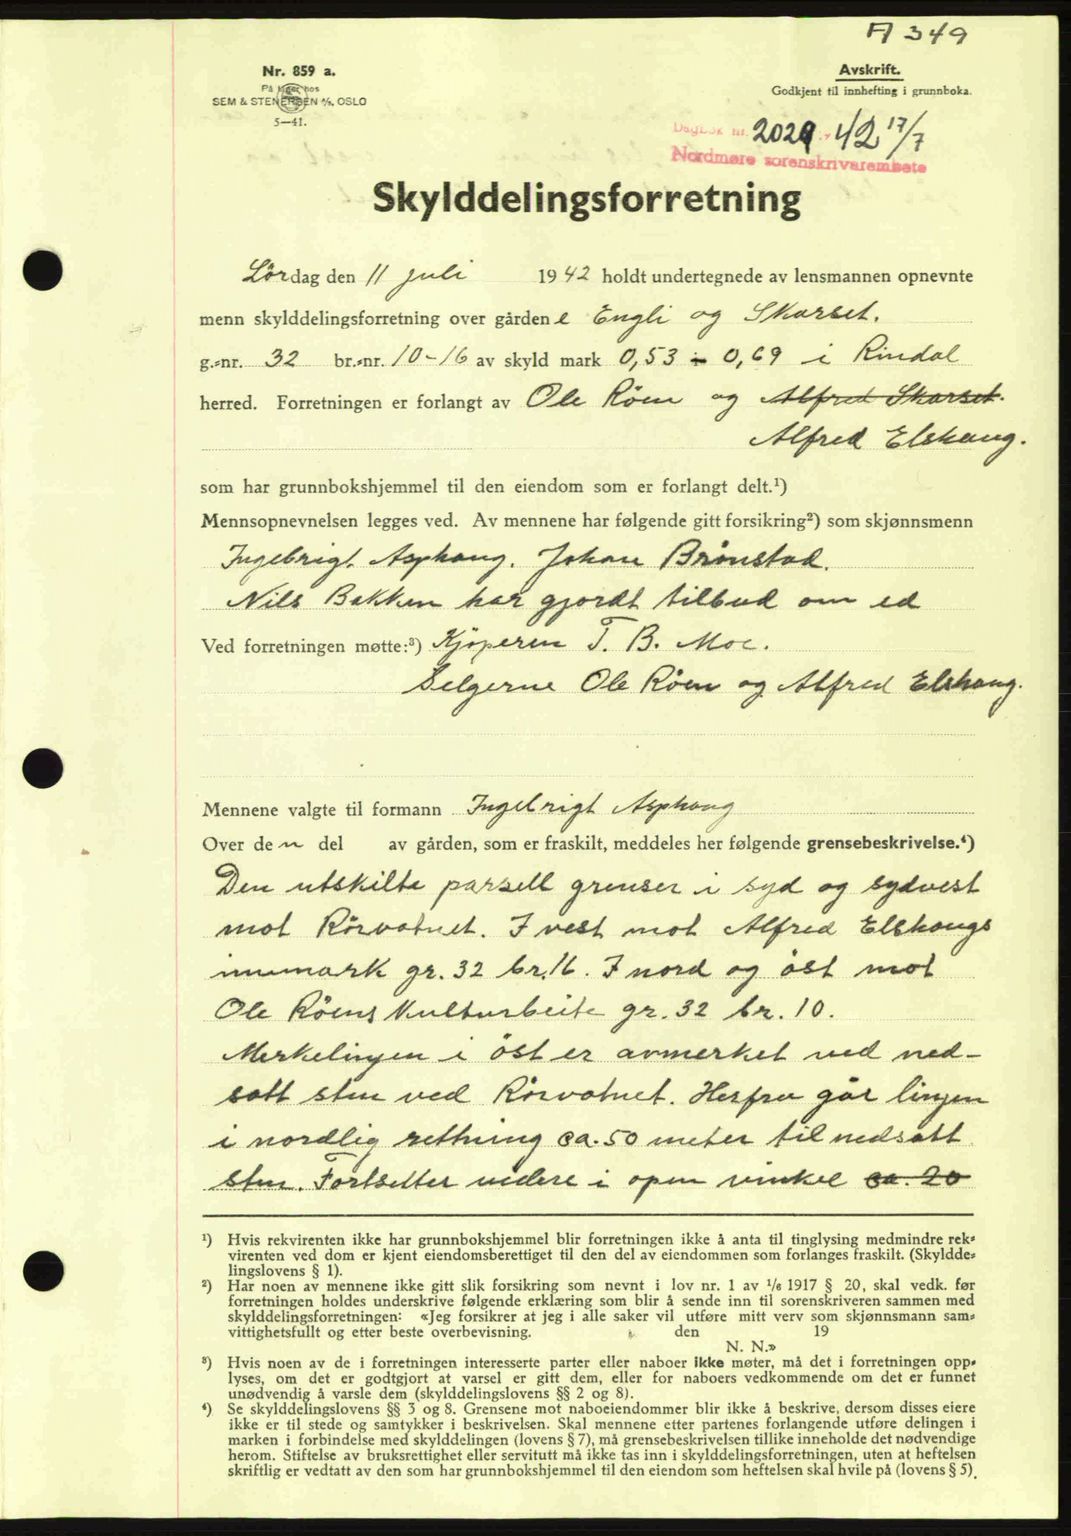 A 349
Nr. 859 a.
På lager hos
SEM & STENERSEN A/S, OSLO
5—41.
Avskrift.
Godkjent til innhefting i grunnboka.
Dagbok nr. 2029 42 17/7
Nordmøre sorenskrivarembete
Skylddelingsforretning
Lördag den 11 juli 1942 holdt undertegnede av lensmannen opnevnte
menn skylddelingsforretning over gårdene Engli og Skarset.
g.=nr. 32 br.=nr. 10-16 av skyld mark 0,53 - 0,69 i Rindal
herred. Forretningen er forlangt av Ole Röen og Alfred Skarset.
Alfred Elshaug.
som har grunnbokshjemmel til den eiendom som er forlangt delt.¹)
Mennsopnevnelsen legges ved. Av mennene har følgende gitt forsikring²) som skjønnsmenn
Ingebrigt Asphaug. Johan Brönstad.
Nils Bakken har gjordt tilbud om ed
Ved forretningen møtte:³) Kjöperen T. B. Moe.
Selgerne Ole Röen og Alfred Elshaug.
Mennene valgte til formann Ingebrigt Asphaug
Over den del av gården, som er fraskilt, meddeles her følgende grensebeskrivelse.⁴)
Den utskilte parsell grenser i syd og sydvest
mot Rörvatnet. I vest mot Alfred Elshaugs
innmark gr. 32 br. 16. I nord og öst mot
Ole Röens Kulturbeite gr. 32 br. 10.
Merkelinjen i öst er avmerket ved ned-
satt sten ved Rörvatnet. Herfra går linjen
i nordlig rettning ca. 50 meter til nedsatt
sten. Fortsetter videre i open vinkel ca. 20
¹) Hvis rekvirenten ikke har grunnbokshjemmel blir forretningen ikke å anta til tinglysing medmindre rek=
virenten ved dom er kjent eiendomsberettiget til den del av eiendommen som forlanges fraskilt. (Skyldde=
lingslovens § 1).
²) Har noen av mennene ikke gitt slik forsikring som nevnt i lov nr. 1 av 1/6 1917 § 20, skal vedk. før
forretningen holdes underskrive følgende erklæring som blir å sende inn til sorenskriveren sammen med
skylddelingsforretningen: «Jeg forsikrer at jeg i alle saker vil utføre mitt verv som skjønnsmann sam=
vittighetsfullt og etter beste overbevisning. den 19
N. N.»
³) Hvis noen av de i forretningen interesserte parter eller naboer ikke møter, må det i forretningen opp=
lyses, om det er godtgjort at varsel er gitt dem, eller for naboers vedkommende om det er funnet
unødvendig å varsle dem (skylddelingslovens §§ 2 og 8).
⁴) Se skylddelingslovens §§ 3 og 8. Grensene mot naboeiendommer blir ikke å beskrive, dersom disses eiere
ikke er til stede og samtykker i beskrivelsen. Skal mennene etter partenes forlangende utføre delingen i
marken i forbindelse med skylddelingen (lovens § 7), må grensebeskrivelsen tillike inneholde det nødvendige
herom. Stiftelse av bruksrettighet eller servitutt må ikke tas inn i skylddelingsforretningen, uten at heftelsen
skriftlig er vedtatt av den som har grunnbokshjemmel til den eiendom som heftelsen skal hvile på (lovens § 5).